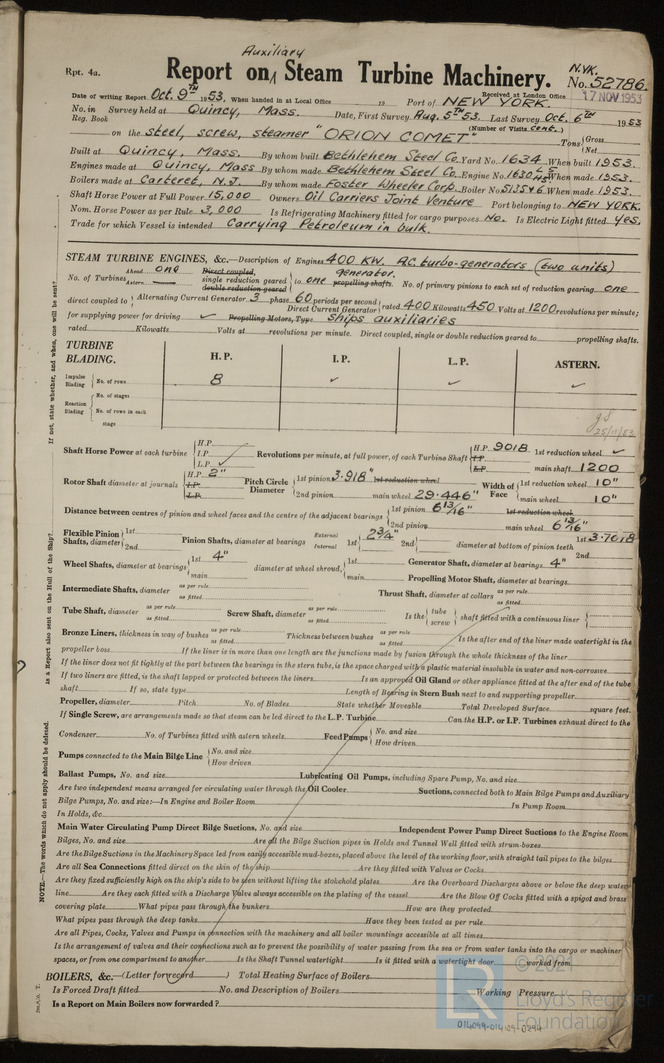 Auxiliary
Rpt. 4a.
Report on Steam Turbine Machinery.
N.YK.
No. 52786.
Received at London Office 17 NOV 1953
Date of writing Report Oct. 9TH 1953. When handed in at Local Office 19 Port of NEW YORK.
No. in Reg. Book Survey held at Quincy, Mass. Date, First Survey Aug. 5TH 53. Last Survey Oct. 6TH 1953
(Number of Visits cont.)
on the steel, screw, steamer "ORION COMET" Tons { Gross Net
Built at Quincy, Mass. By whom built Bethlehem Steel Co. Yard No. 1634 When built 1953.
Engines made at Quincy, Mass By whom made Bethlehem Steel Co. Engine No. When made 1953.
Boilers made at Carteret, N.J. By whom made Foster Wheeler Corp. Boiler No. When made 1953.
Shaft Horse Power at Full Power 15,000 Owners Oil Carriers Joint Venture Port belonging to NEW YORK.
Nom. Horse Power as per Rule 3,000 Is Refrigerating Machinery fitted for cargo purposes No. Is Electric Light fitted Yes.
Trade for which Vessel is intended Carrying Petroleum in bulk.
STEAM TURBINE ENGINES, &c.—Description of Engines 400 KW. A.C. turbo-generators (two units)
No. of Turbines Ahead one Astern Direct coupled, single reduction geared double reduction geared } to one generator. propelling shafts. No. of primary pinions to each set of reduction gearing one
direct coupled to { Alternating Current Generator 3 phase 60 periods per second Direct Current Generator } rated 400 Kilowatts 450 Volts at 1200 revolutions per minute;
for supplying power for driving ✓ Propelling Motors, Type Ships auxiliaries
rated Kilowatts Volts at revolutions per minute. Direct coupled, single or double reduction geared to propelling shafts.
TURBINE BLADING. H.P. I.P. L.P. ASTERN.
Impulse Blading { No. of rows 8 ✓ ✓ ✓
Reaction Blading { No. of stages
No. of rows in each stage
Shaft Horse Power at each turbine { H.P. I.P. L.P. ✓ Revolutions per minute, at full power, of each Turbine Shaft { H.P. 9018 I.P. L.P. 1st reduction wheel ✓ main shaft 1200
Rotor Shaft diameter at journals { H.P. 2" I.P. L.P. Pitch Circle Diameter { 1st pinion 3.918" 1st reduction wheel 2nd pinion main wheel 29.446" Width of Face { 1st reduction wheel 10" main wheel 10"
Distance between centres of pinion and wheel faces and the centre of the adjacent bearings { 1st pinion 6 13/16" 2nd pinion 1st reduction wheel main wheel 6 13/16"
Flexible Pinion Shafts, diameter { 1st 2nd Pinion Shafts, diameter at bearings External Internal 1st 2 3/4" 2nd diameter at bottom of pinion teeth { 1st 3.7018 2nd
Wheel Shafts, diameter at bearings { 1st 4" main diameter at wheel shroud, { 1st main Generator Shaft, diameter at bearings 4" Propelling Motor Shaft, diameter at bearings
Intermediate Shafts, diameter as per rule as fitted Thrust Shaft, diameter at collars as per rule as fitted
Tube Shaft, diameter as per rule as fitted Screw Shaft, diameter as per rule as fitted Is the { tube screw } shaft fitted with a continuous liner {
Bronze Liners, thickness in way of bushes as per rule as fitted Thickness between bushes as per rule as fitted Is the after end of the liner made watertight in the
propeller boss If the liner is in more than one length are the junctions made by fusion through the whole thickness of the liner
If the liner does not fit tightly at the part between the bearings in the stern tube, is the space charged with a plastic material insoluble in water and non-corrosive
If two liners are fitted, is the shaft lapped or protected between the liners Is an approved Oil Gland or other appliance fitted at the after end of the tube
shaft If so, state type Length of Bearing in Stern Bush next to and supporting propeller
Propeller, diameter Pitch No. of Blades State whether Moveable Total Developed Surface square feet.
If Single Screw, are arrangements made so that steam can be led direct to the L.P. Turbine Can the H.P. or I.P. Turbines exhaust direct to the
Condenser No. of Turbines fitted with astern wheels Feed Pumps { No. and size How driven
Pumps connected to the Main Bilge Line { No. and size How driven
Ballast Pumps, No. and size Lubricating Oil Pumps, including Spare Pump, No. and size
Are two independent means arranged for circulating water through the Oil Cooler Suctions, connected both to Main Bilge Pumps and Auxiliary
Bilge Pumps, No. and size:—In Engine and Boiler Room In Pump Room
In Holds, &c.
Main Water Circulating Pump Direct Bilge Suctions, No. and size Independent Power Pump Direct Suctions to the Engine Room
Bilges, No. and size Are all the Bilge Suction pipes in Holds and Tunnel Well fitted with strum-boxes
Are the Bilge Suctions in the Machinery Space led from easily accessible mud-boxes, placed above the level of the working floor, with straight tail pipes to the bilges
Are all Sea Connections fitted direct on the skin of the ship Are they fitted with Valves or Cocks
Are they fixed sufficiently high on the ship's side to be seen without lifting the stokehold plates Are the Overboard Discharges above or below the deep water
line Are they each fitted with a Discharge Valve always accessible on the plating of the vessel Are the Blow Off Cocks fitted with a spigot and brass
covering plate What pipes pass through the bunkers How are they protected
What pipes pass through the deep tanks Have they been tested as per rule
Are all Pipes, Cocks, Valves and Pumps in connection with the machinery and all boiler mountings accessible at all times
Is the arrangement of valves and their connections such as to prevent the possibility of water passing from the sea or from water tanks into the cargo or machinery
spaces, or from one compartment to another Is the Shaft Tunnel watertight Is it fitted with a watertight door worked from
BOILERS, &c.—(Letter for record ) Total Heating Surface of Boilers
Is Forced Draft fitted No. and Description of Boilers Working Pressure
Is a Report on Main Boilers now forwarded?
If not, state whether, and when, one will be sent?
Is a Report also sent on the Hull of the Ship?
NOTE.—The words which do not apply should be deleted.
© 2021
LR
Lloyd's Register
Foundation
014099-014109-0294